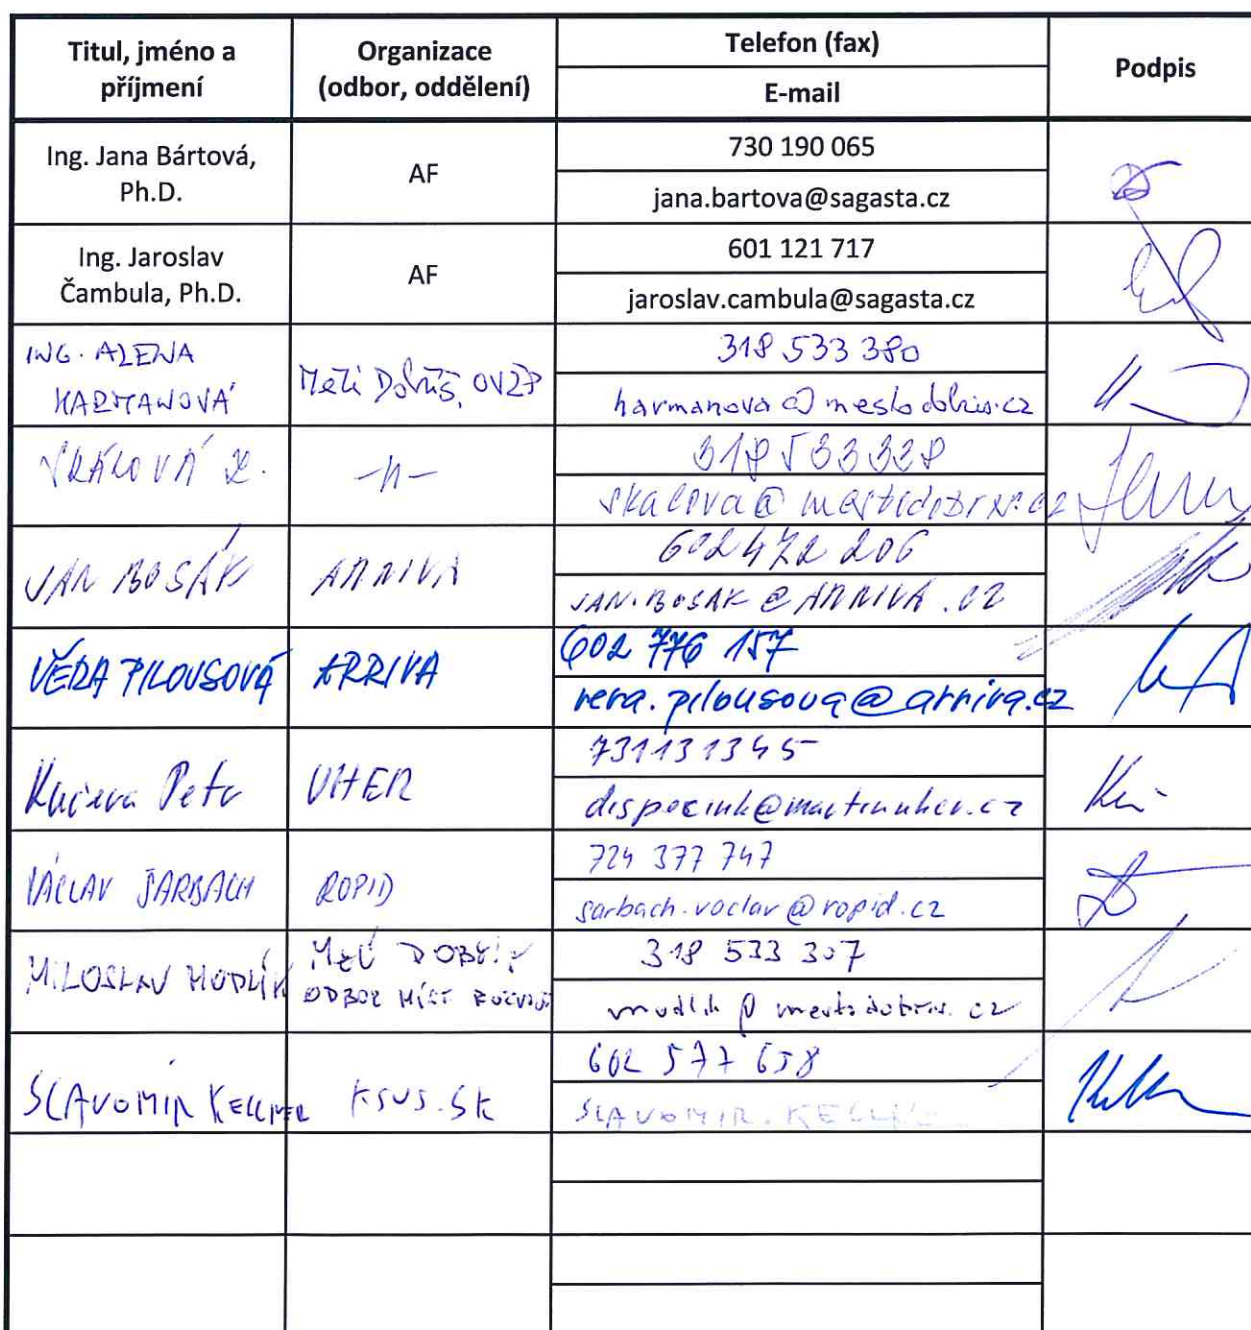 Titul, jméno a
příjmení
Organizace
(odbor, oddělení)
Telefon (fax)
E-mail
Podpis
Ing. Jana Bártová,
Ph.D.
AF
730 190 065
jana.bartova@sagasta.cz
Ing. Jaroslav
Čambula, Ph.D.
AF
601 121 717
jaroslav.cambula@sagasta.cz
ING. ALENA
HARMANOVÁ
MěÚ Dobříš, OVŽP
318 533 380
harmanova@mestodobris.cz
-||-
318 533 328
skalova@mestodobris.cz
JAN BOSÁK
ARRIVA
602 472 206
JAN.BOSAK@ARRIVA.CZ
VĚRA PILOUSOVÁ
ARRIVA
602 776 157
vera.pilousova@arriva.cz
Kučera Petr
UHER
731131345
dispecink@martinuher.cz
VÁCLAV ŠARBACH
ROPID
724 377 747
sarbach.vaclav@ropid.cz
MILOSLAV MUDLÍK
MěÚ DOBŘÍŠ
ODBOR MÍST ROZVOJE
318 533 307
mudlik@mestodobris.cz
SLAVOMÍR KELLNER
KSUS.SK
602 577 658
SLAVOMIR.